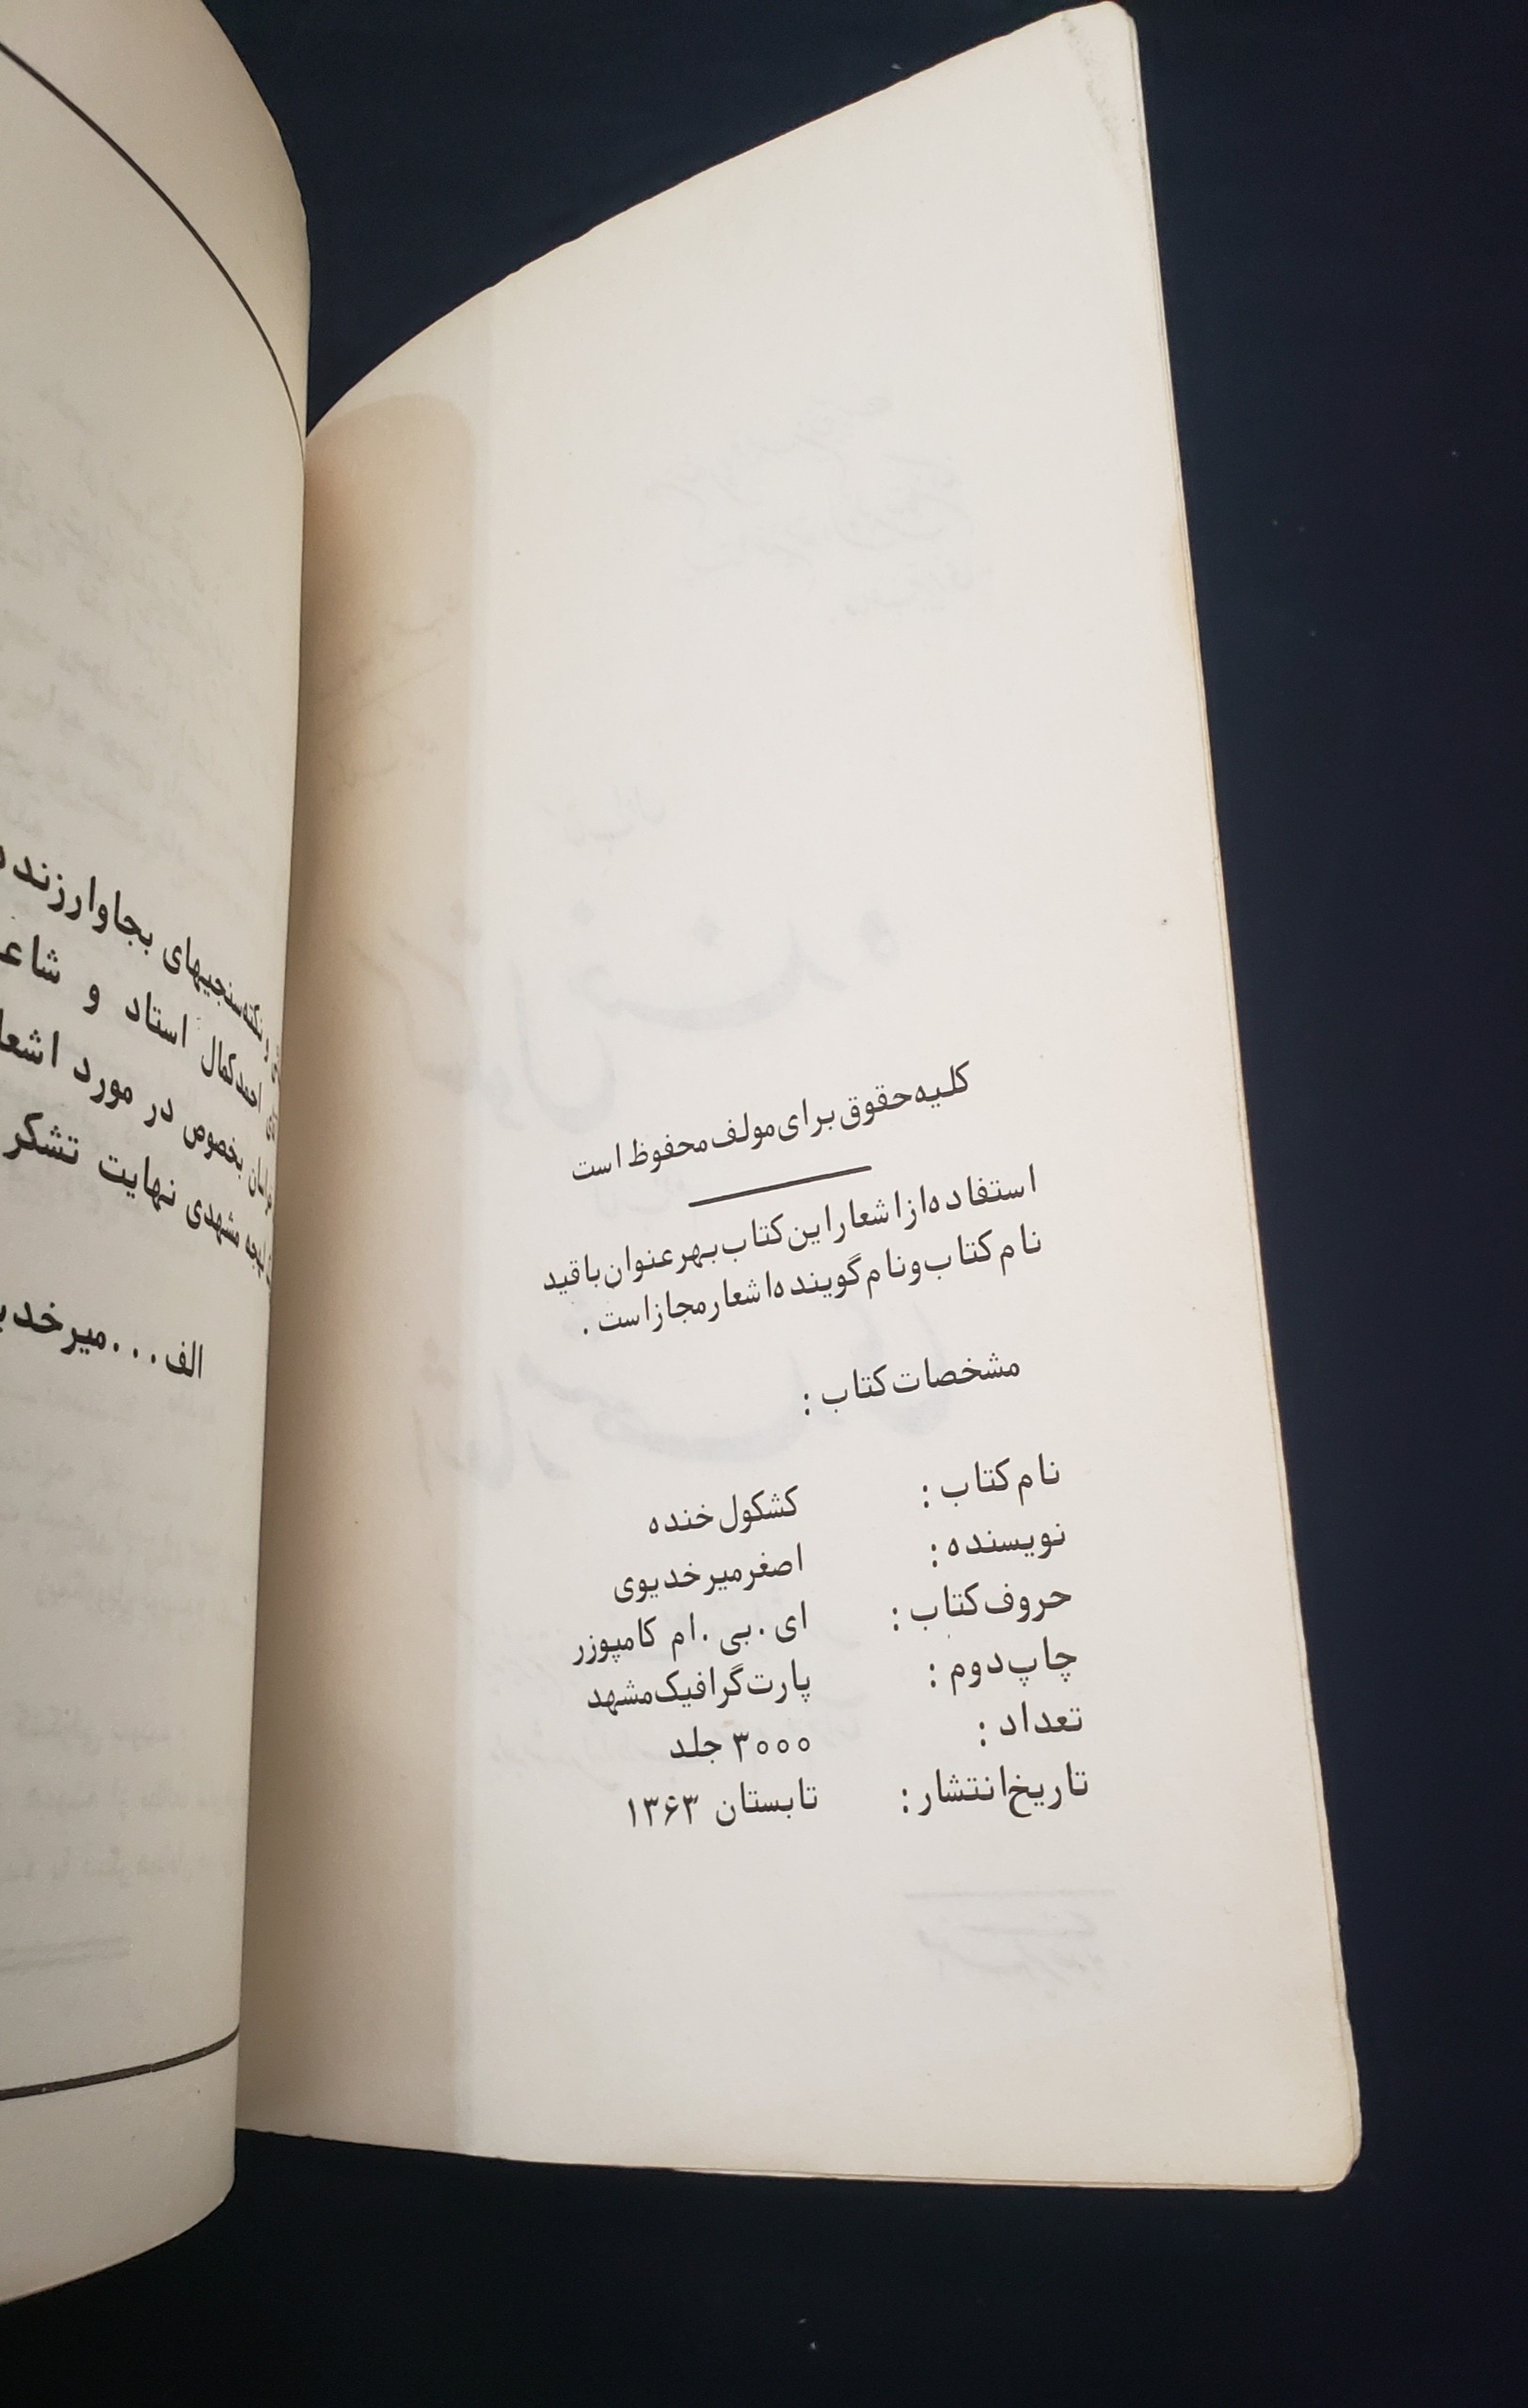 کلیه حقوق برای مولف محفوظ است
استفاده از اشعار این کتاب بهر عنوان با قید
نام کتاب و نام گوینده اشعار مجاز است .
مشخصات کتاب :
نام کتاب : کشکول خنده
نویسنده : اصغر میرخدیوی
حروف کتاب : ای . بی . ام کامپوزر
چاپ دوم : پارت گرافیک مشهد
تعداد : ۳۰۰۰ جلد
تاریخ انتشار : تابستان ۱۳۶۳
و نکته‌سنجیهای بجا و ارزنده
احمد کمال استاد و
بخصوص در مورد
لهجه مشهدی نهایت تشکر
الف...